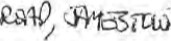 ROAD, JAMESTOWN